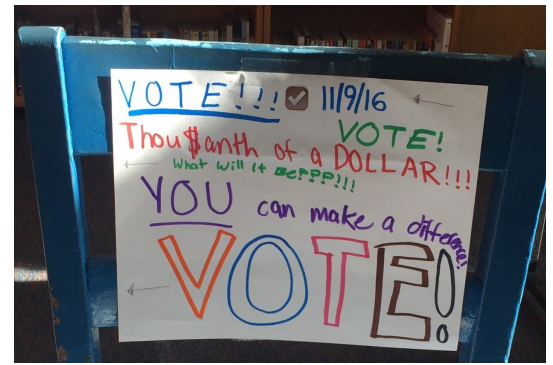 VOTE!!! ☑ 11/9/16
VOTE!
Thou$anth of a DOLLAR!!!
What will it BE???!!!
YOU can make a difference!
VOTE!